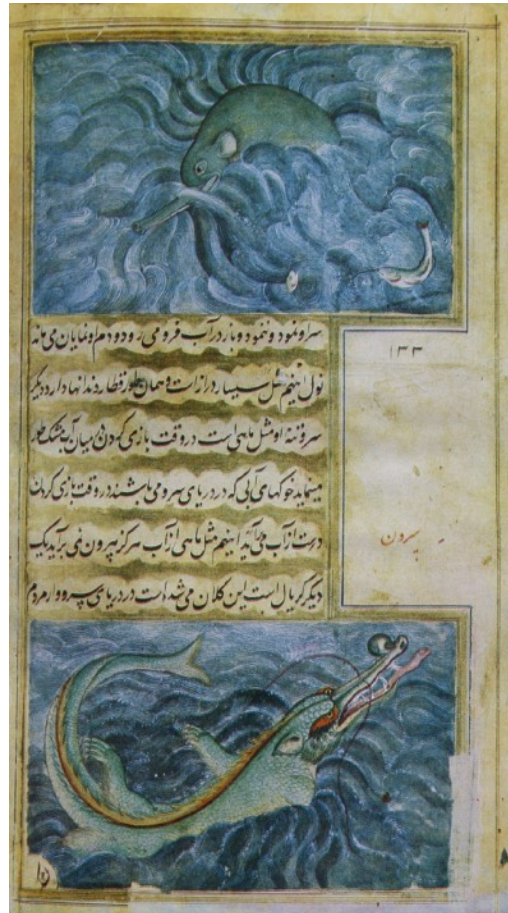 سرو نمود و ننمود و باز در آب فرو می رود و دم او نمایان می ماند
١٣٣
نول اینهم مثل سیسار دراز است و همان طور قطار دندانها دارد دیگر
سر و تنهٔ او مثل ماهی است در وقت بازی کردن در میان آب مشک طور
مینماید خوکهای آبی که در دریای سرو می باشند در وقت بازی کردن
درست از آب می برآید اینهم مثل ماهی از آب هرگز بیرون نمی برآید یک
دیگر کریال است این کلان می شده است در دریای سرو مردم